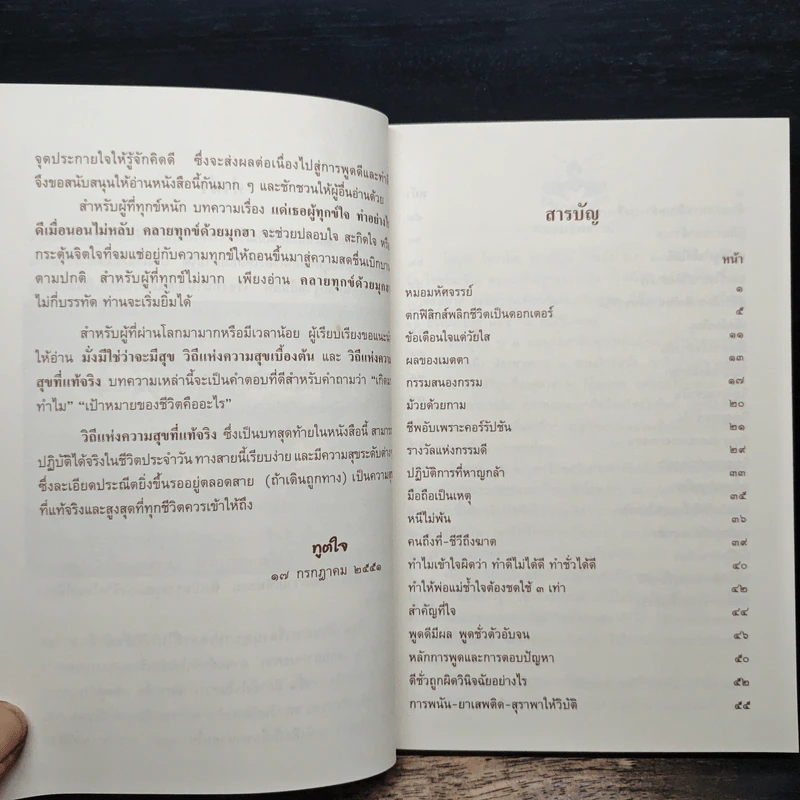 จุดประกายใจให้รู้จักคิดดี ซึ่งจะส่งผลต่อเนื่องไปสู่การพูดดีและทำดี
จึงขอสนับสนุนให้อ่านหนังสือนี้กันมาก ๆ และชักชวนให้ผู้อื่นอ่านด้วย
สำหรับผู้ที่ทุกข์หนัก บทความเรื่อง แด่เธอผู้ทุกข์ใจ ทำอย่างไร
ดีเมื่อนอนไม่หลับ คลายทุกข์ด้วยมุกฮา จะช่วยปลอบใจ สะกิดใจ
กระตุ้นจิตใจที่จมแช่อยู่กับความทุกข์ให้ถอนขึ้นมาสู่ความสดชื่นเบิกบาน
ตามปกติ สำหรับผู้ที่ทุกข์ไม่มาก เพียงอ่าน คลายทุกข์ด้วยมุกฮา
ไม่กี่บรรทัด ท่านจะเริ่มยิ้มได้
สำหรับผู้ที่ผ่านโลกมามากหรือมีเวลาน้อย ผู้เรียบเรียงขอแนะนำ
ให้อ่าน มั่งมีใช่ว่าจะมีสุข วิถีแห่งความสุขเบื้องต้น และ วิถีแห่งความ
สุขที่แท้จริง บทความเหล่านี้จะเป็นคำตอบที่ดีสำหรับคำถามว่า "เกิดมา
ทำไม" "เป้าหมายของชีวิตคืออะไร"
วิถีแห่งความสุขที่แท้จริง ซึ่งเป็นบทสุดท้ายในหนังสือนี้ สามารถ
ปฏิบัติได้จริงในชีวิตประจำวัน ทางสายนี้เรียบง่าย และมีความสุขระดับต่างๆ
ซึ่งละเอียดประณีตยิ่งขึ้นรออยู่ตลอดสาย (ถ้าเดินถูกทาง) เป็นความสุข
ที่แท้จริงและสูงสุดที่ทุกชีวิตควรเข้าให้ถึง
ทูตใจ
๑๗ กรกฎาคม ๒๕๕๑
สารบัญ
หน้า
หมอมหัศจรรย์ ๑
ตกฟิสิกส์พลิกชีวิตเป็นดอกเตอร์ ๕
ข้อเตือนใจแด่วัยใส ๑๑
ผลของเมตตา ๑๓
กรรมสนองกรรม ๑๗
ม้วยด้วยกาม ๒๐
ชีพอับเพราะคอร์รัปชัน ๒๑
รางวัลแห่งกรรมดี ๒๙
ปฏิบัติการที่หาญกล้า ๓๓
มือถือเป็นเหตุ ๓๕
หนีไม่พ้น ๓๖
คนถึงที่-ชีวีถึงฆาต ๓๙
ทำไมเข้าใจผิดว่า ทำดีไม่ได้ดี ทำชั่วได้ดี ๔๐
ทำให้พ่อแม่ช้ำใจต้องชดใช้ ๓ เท่า ๔๒
สำคัญที่ใจ ๔๔
พูดดีมีผล พูดชั่วตัวอับจน ๔๖
หลักการพูดและการตอบปัญหา ๕๐
ดีชั่วถูกผิดวินิจฉัยอย่างไร ๕๒
การพนัน-ยาเสพติด-สุราพาให้วิบัติ ๕๕